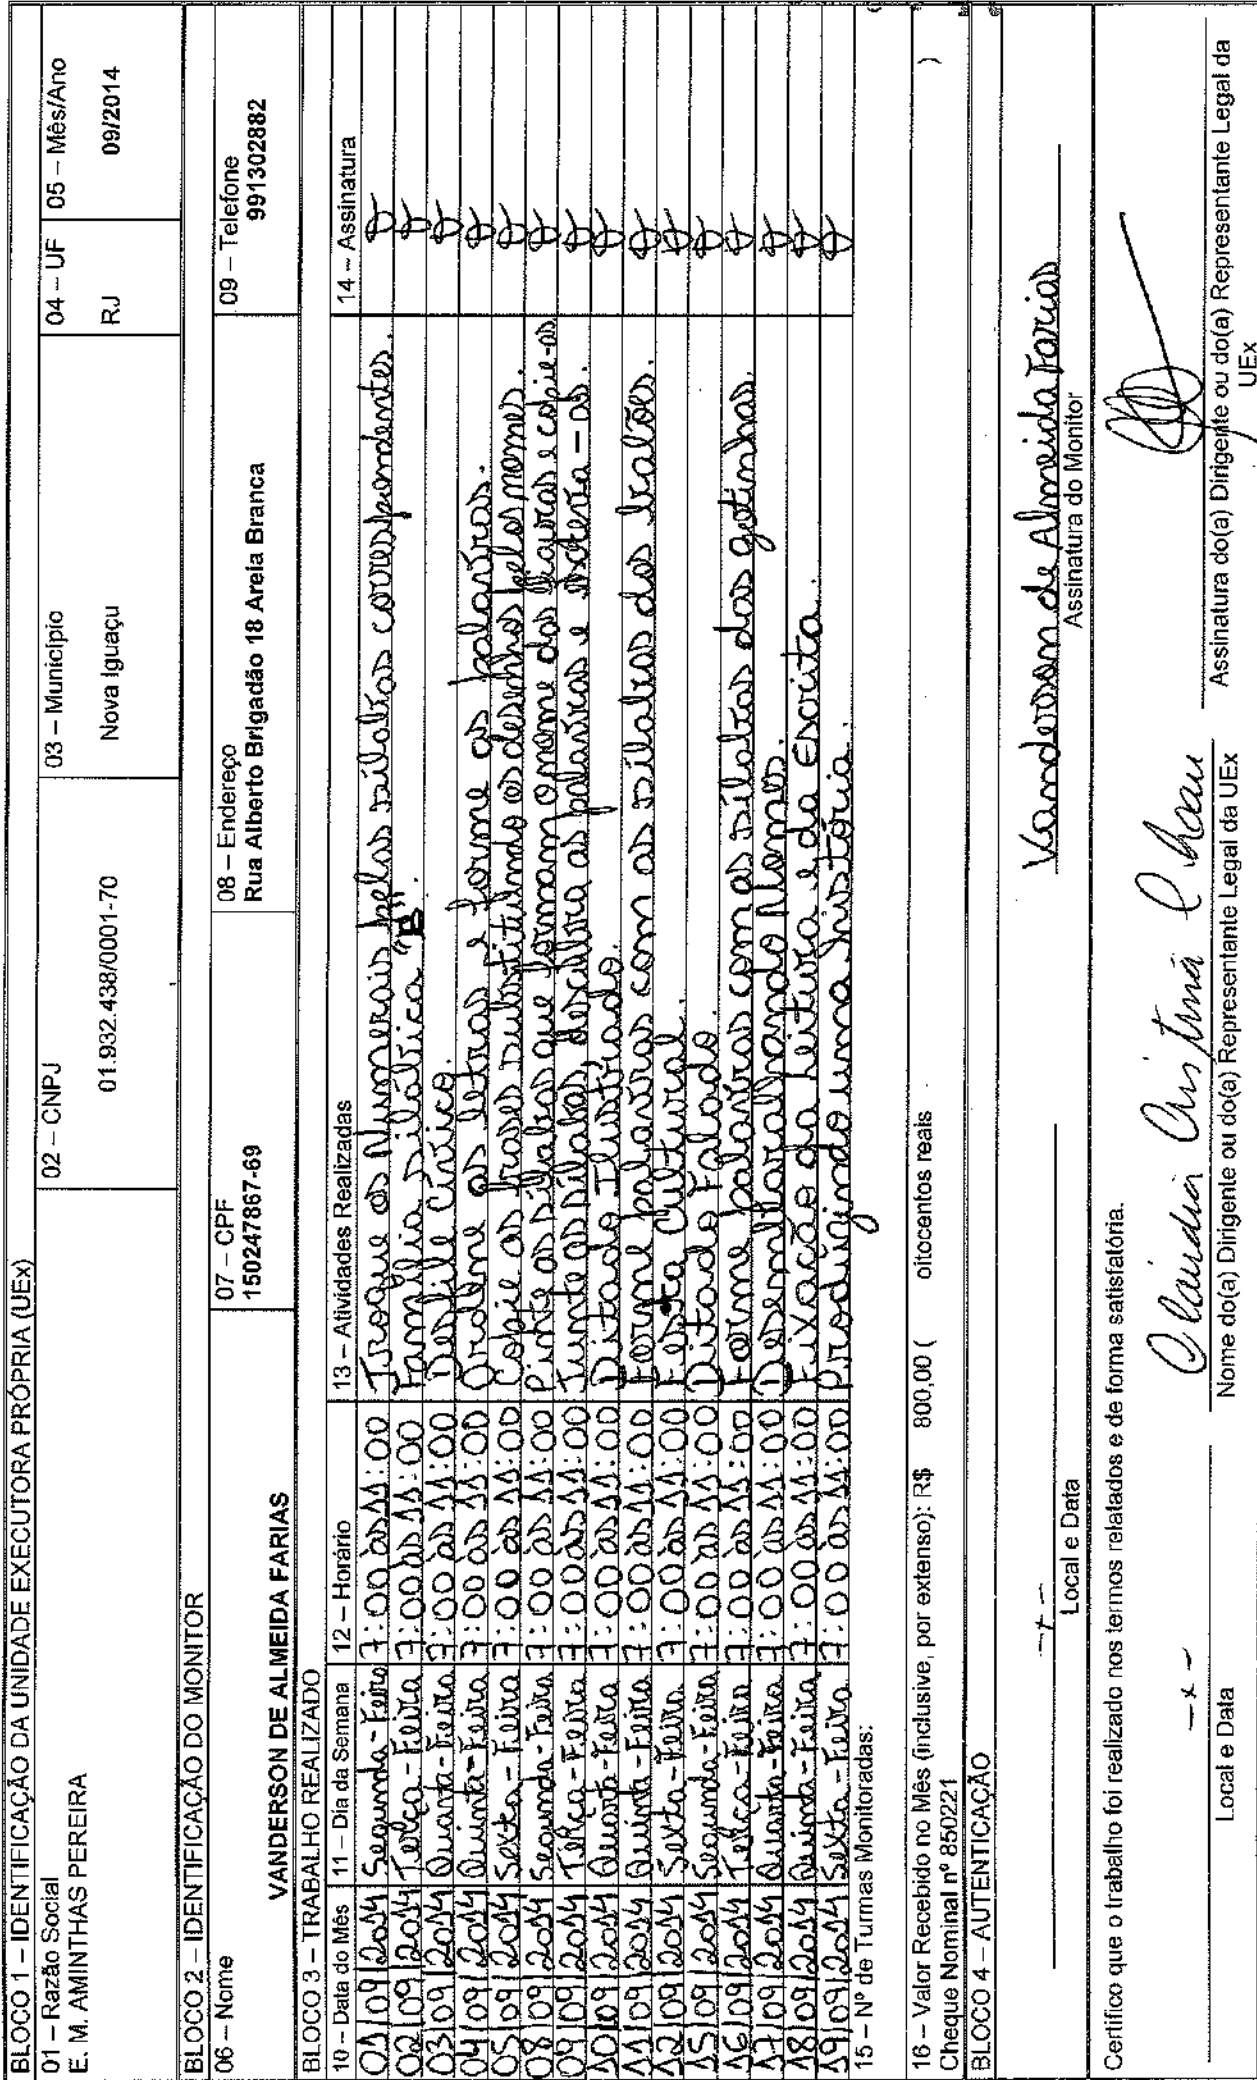 BLOCO 1 – IDENTIFICAÇÃO DA UNIDADE EXECUTORA PRÓPRIA (UEx)
01 – Razão Social
E. M. AMINTHAS PEREIRA
02 – CNPJ
01.932.438/0001-70
03 – Município
Nova Iguaçu
04 – UF
RJ
05 – Mês/Ano
09/2014
BLOCO 2 – IDENTIFICAÇÃO DO MONITOR
06 – Nome
VANDERSON DE ALMEIDA FARIAS
07 – CPF
150247867-69
08 – Endereço
Rua Alberto Brigadão 18 Areia Branca
09 – Telefone
991302882
BLOCO 3 – TRABALHO REALIZADO
10 – Data do Mês 11 – Dia da Semana 12 – Horário 13 – Atividades Realizadas 14 – Assinatura
01/09/2014 Segunda-Feira 7:00 às 11:00 Troque os Numerais pelas sílabas correspondentes.
02/09/2014 Terça-Feira 7:00 às 11:00 Família silábica "B".
03/09/2014 Quarta-Feira 7:00 às 11:00 Desfile Cívico.
04/09/2014 Quinta-Feira 7:00 às 11:00 Ordene as letras e forme as palavras.
05/09/2014 Sexta-Feira 7:00 às 11:00 Copie as frases substituindo os desenhos pelos nomes.
08/09/2014 Segunda-Feira 7:00 às 11:00 Pinte as sílabas que formam o nome das figuras e copie-as
09/09/2014 Terça-Feira 7:00 às 11:00 Junte as sílabas, descubra as palavras e escreva-as.
10/09/2014 Quarta-Feira 7:00 às 11:00 Ditado Ilustrado.
11/09/2014 Quinta-Feira 7:00 às 11:00 Forme palavras com as sílabas dos balões.
12/09/2014 Sexta-Feira 7:00 às 11:00 Festa Cultural.
15/09/2014 Segunda-Feira 7:00 às 11:00 Ditado Falado.
16/09/2014 Terça-Feira 7:00 às 11:00 Forme palavras com as sílabas das gotinhas.
17/09/2014 Quarta-Feira 7:00 às 11:00 Desembaralhando Nomes.
18/09/2014 Quinta-Feira 7:00 às 11:00 Fixação da Leitura e da Escrita.
19/09/2014 Sexta-Feira 7:00 às 11:00 Produzindo uma história
15 – Nº de Turmas Monitoradas:
16 – Valor Recebido no Mês (inclusive, por extenso): R$ 800,00 ( oitocentos reais )
Cheque Nominal nº 850221
BLOCO 4 – AUTENTICAÇÃO
Vanderson de Almeida Farias
Local e Data
Assinatura do Monitor
Certifico que o trabalho foi realizado nos termos relatados e de forma satisfatória.
-x- Claudia Cristina
Local e Data
Nome do(a) Dirigente ou do(a) Representante Legal da UEx
Assinatura do(a) Dirigente ou do(a) Representante Legal da UEx